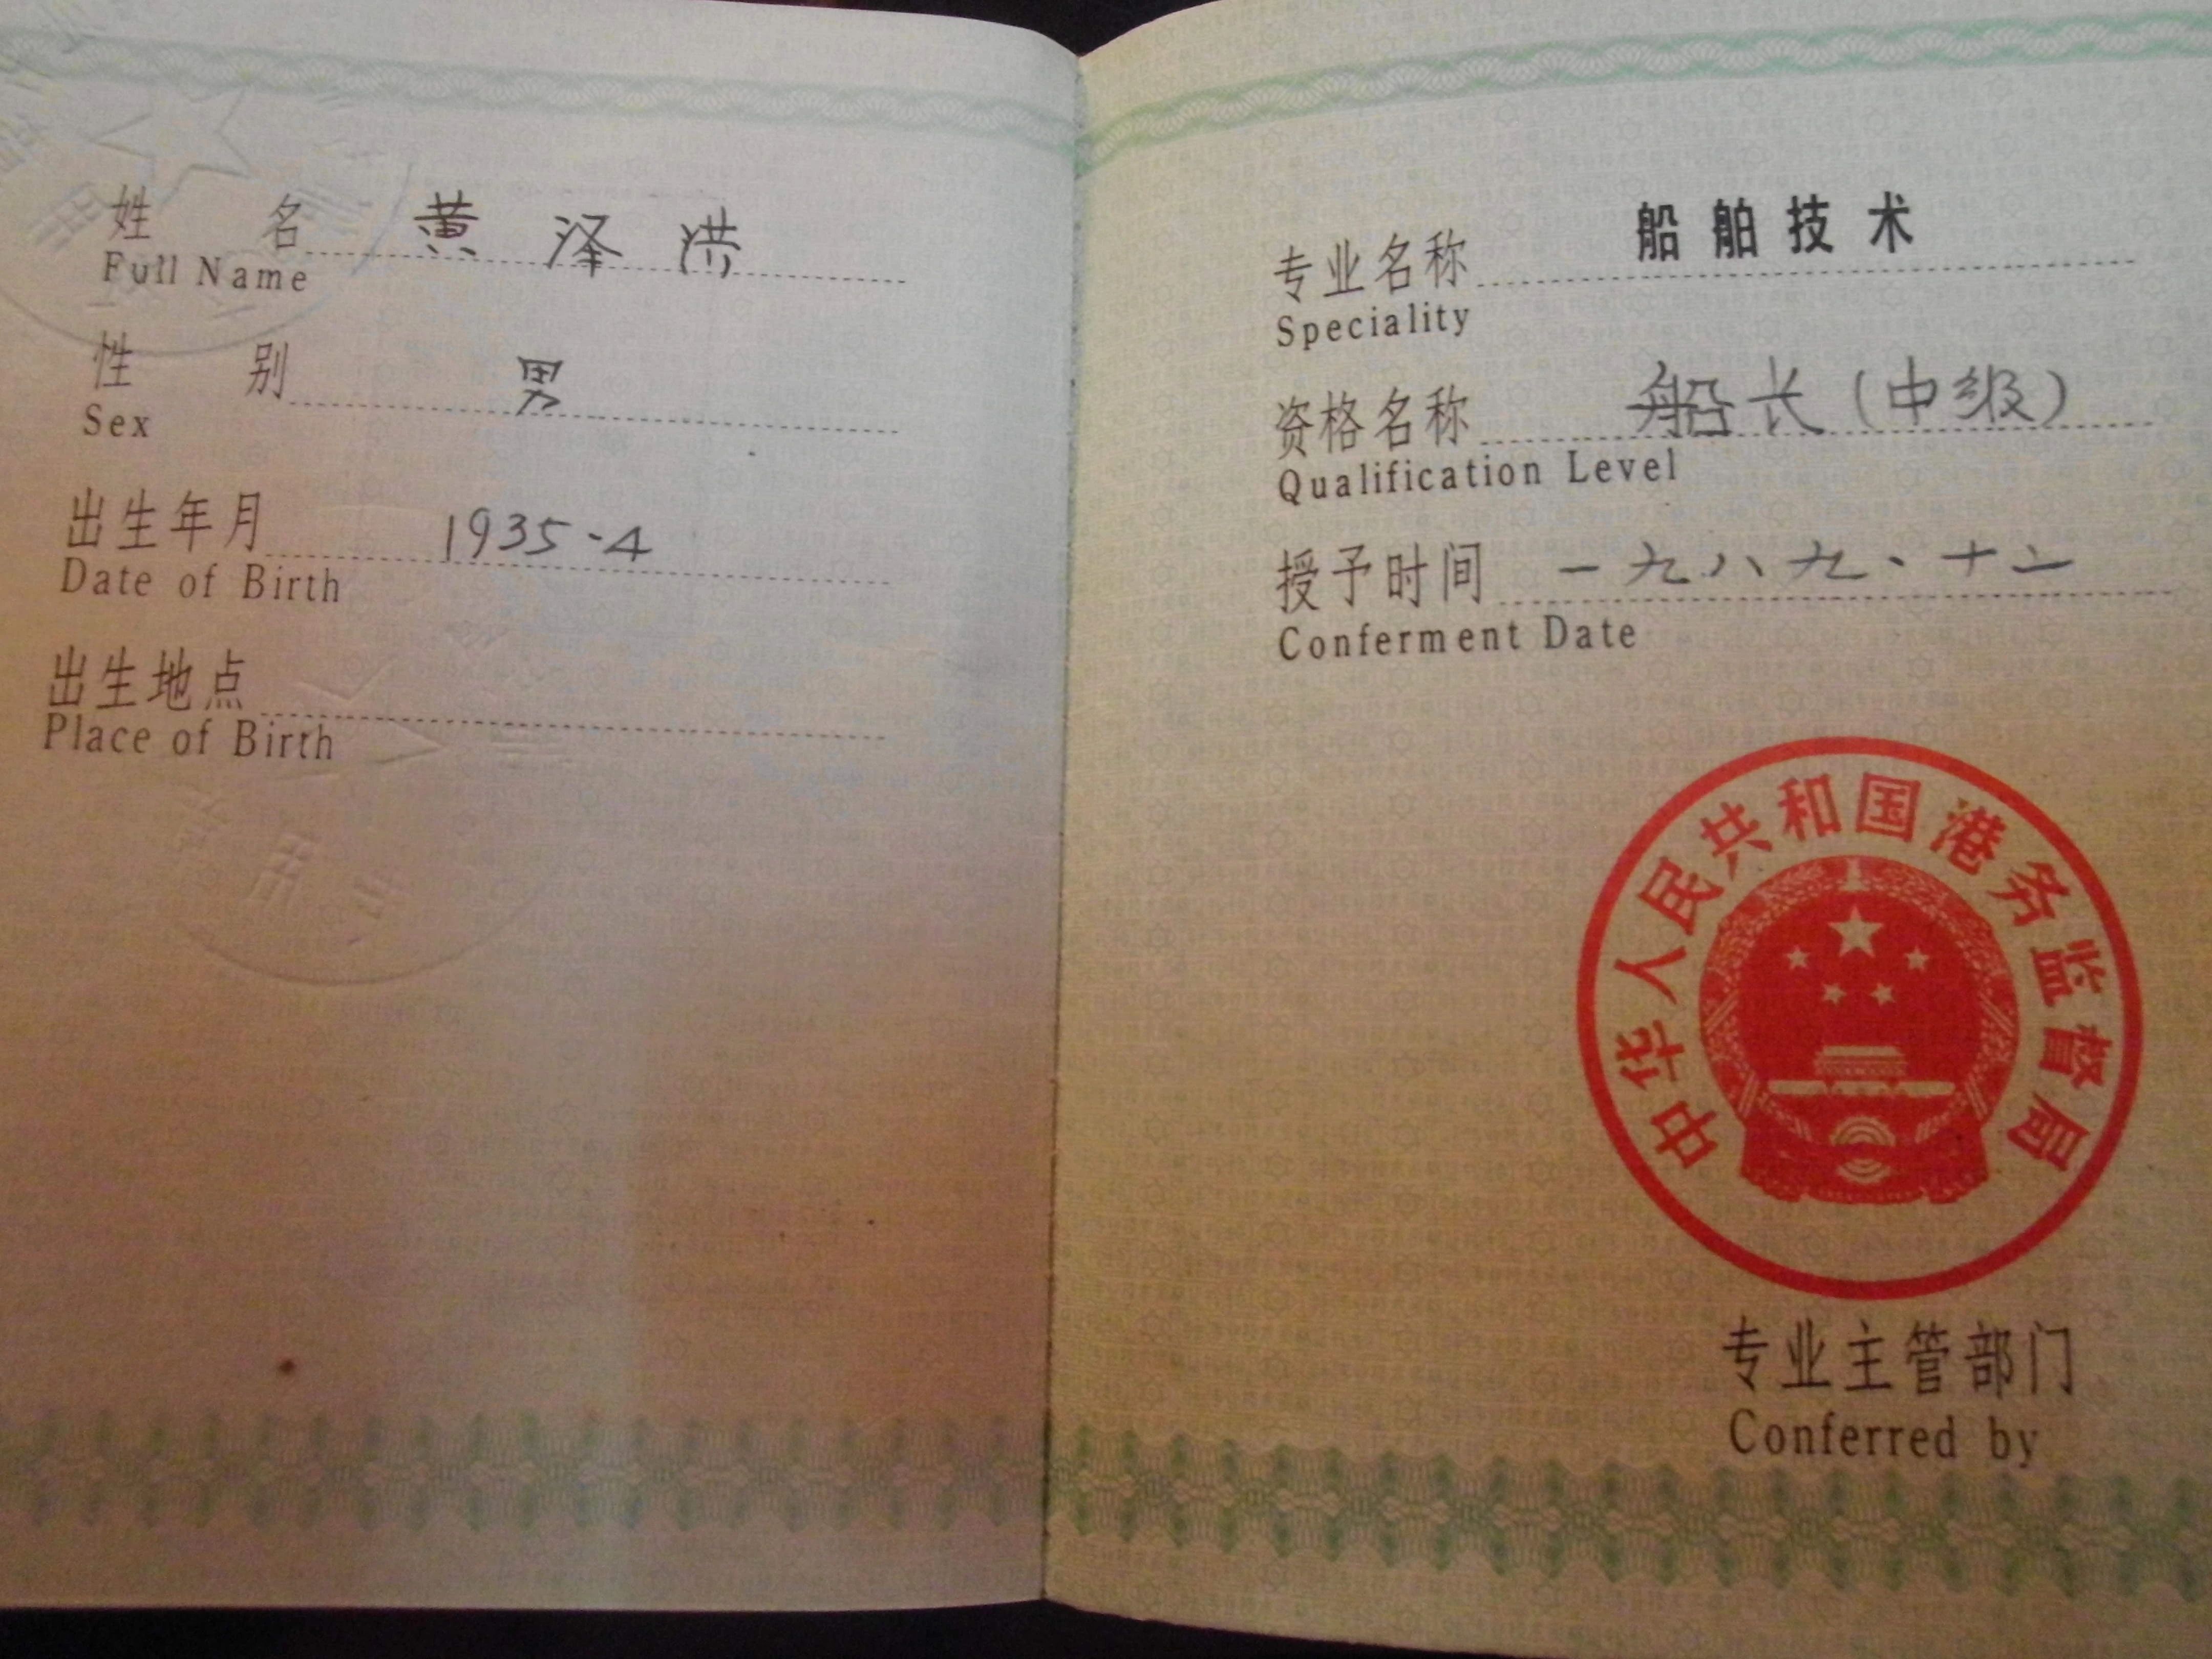 姓名 黄泽洪
Full Name
性别 男
Sex
出生年月 1935-4
Date of Birth
出生地点
Place of Birth
专业名称 船舶技术
Speciality
资格名称 船长(中级)
Qualification Level
授予时间 一九八九、十二
Conferment Date
中华人民共和国港务监督局
专业主管部门
Conferred by